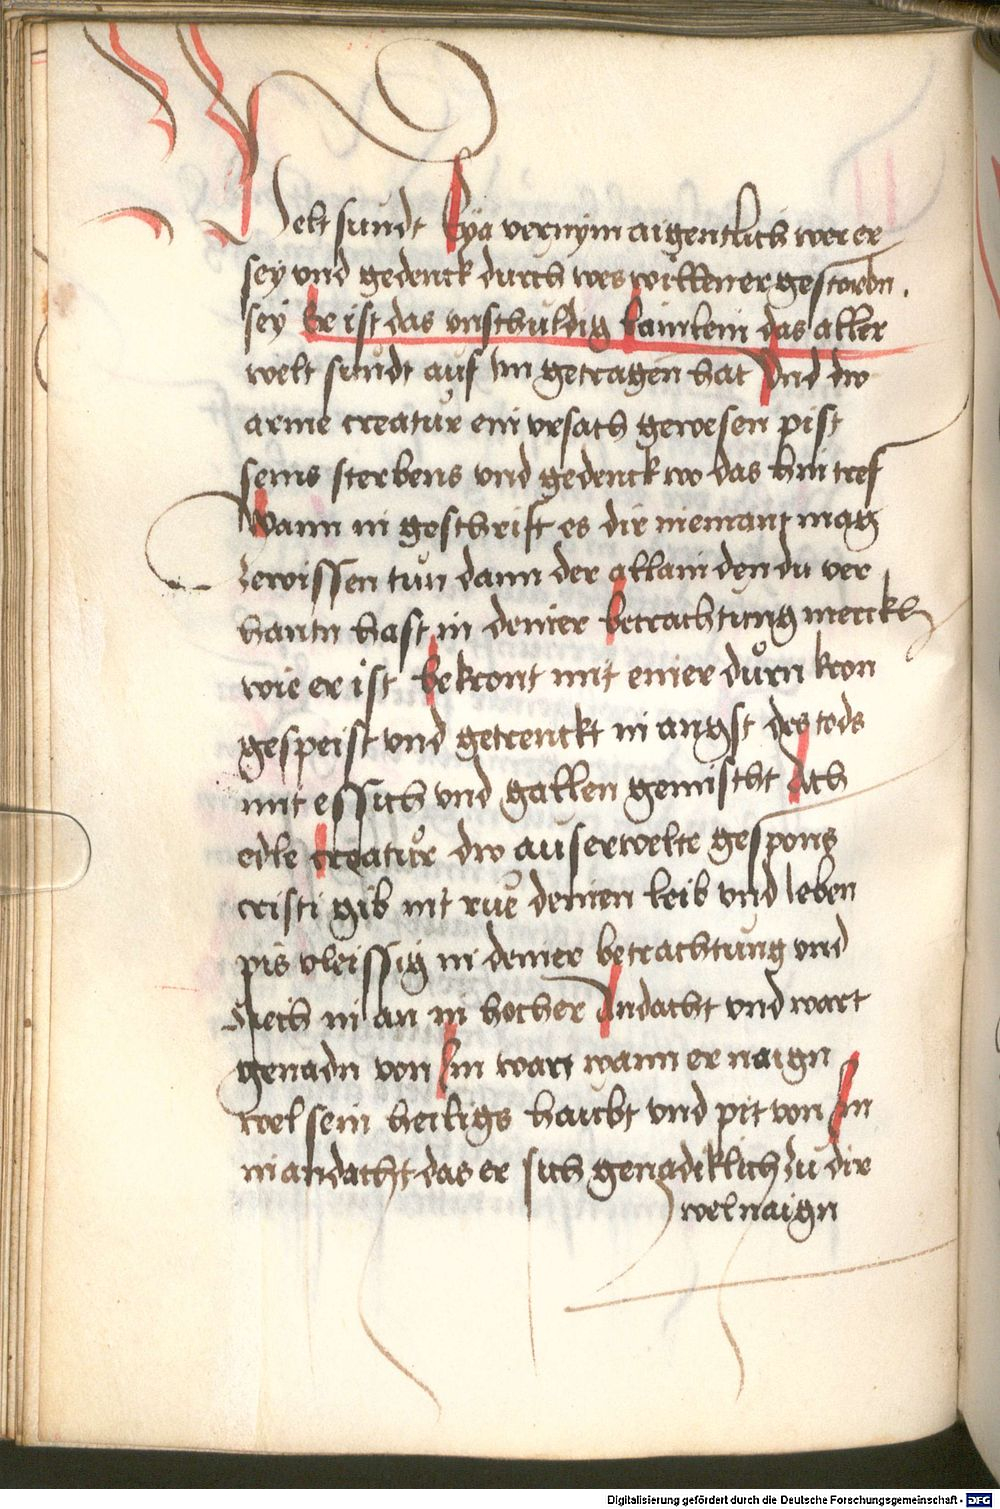 Welt sundt Eya vernym aigentlich wer er
sey vnd gedenck durch wes willen er gestorbn .
sey Er ist das vnschuldig lamlein das aller
welt sundt auf Im getragen hat Vnd dw
arme creatur ein vrsach gewesen pist
seins sterbens vnd gedenck wo das hin tref
Wann in geschrift es dir niemant mag
zewissen tun dann der allain den du ver
hantn hast in deiner betrachtung merckh
wie er ist bekront mit einer důrn kron
gespeist vnd getrenckt in angst des tods
mit essich vnd gallen gemischt Ach
edle creatůr dw auserwelte gespons
cristi gib nit rue deinen leib vnd leben
pis vleissig in deiner betrachtung vnd
sich in an in hocher Andacht vnd wart
genadn von Im wart wann er naign
wel sein heiligs haubt vnd pit von Im
in andacht das er sich genadiklich zu dir
wel naign
Digitalisierung gefördert durch die Deutsche Forschungsgemeinschaft - DFG